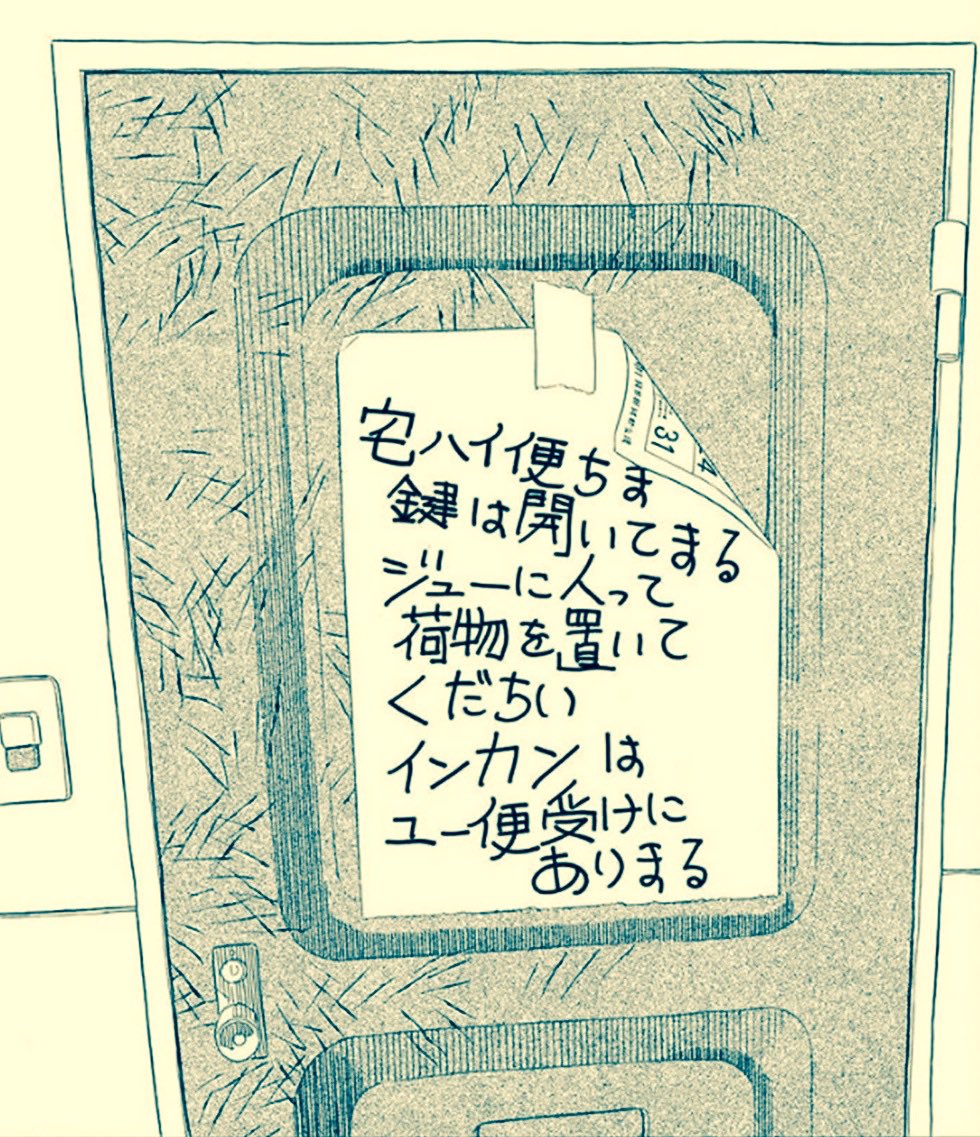 宅ハイ便ちま
鍵は開いてまる
ジューに人って
荷物を置いて
くだちい
インカンは
ユー便受けに
ありまる
31
4